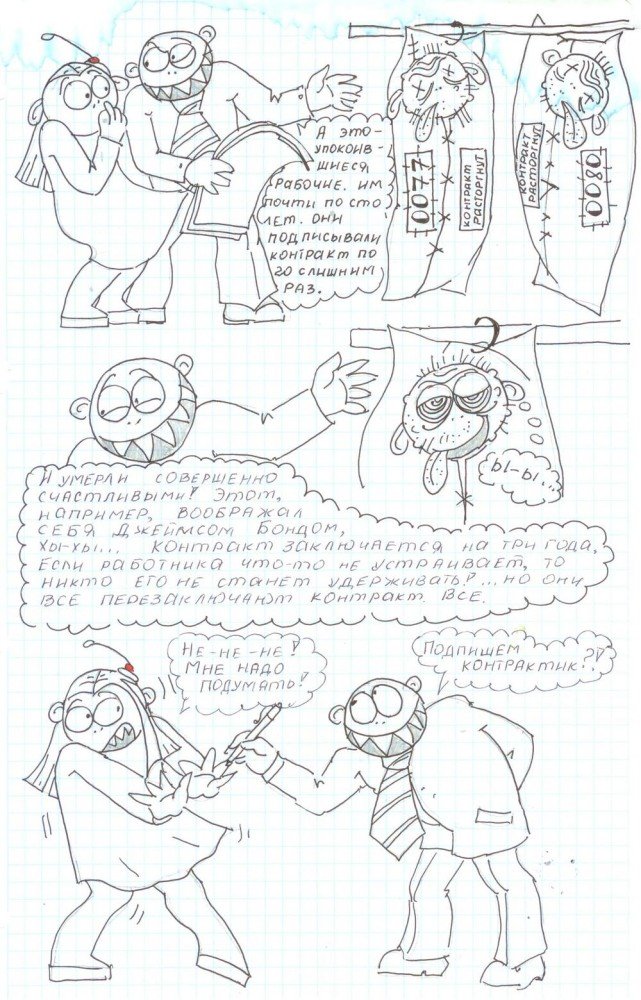 А ЭТО-
УПОКОИВ-
ШИЕСЯ
РАБОЧИЕ. ИМ
ПОЧТИ ПО СТО
ЛЕТ. ОНИ
ПОДПИСЫВАЛИ
КОНТРАКТ ПО
20 СЛИШНИМ
РАЗ.
0077
КОНТРАКТ
РАСТОРГНУТ
КОНТРАКТ
РАСТОРГНУТ
0080
Ы-Ы...
И УМЕРЛИ СОВЕРШЕННО
СЧАСТЛИВЫМИ! ЭТОТ,
НАПРИМЕР, ВООБРАЖАЛ
СЕБЯ ДЖЕЙМСОМ БОНДОМ,
ХЫ-ХЫ... КОНТРАКТ ЗАКЛЮЧАЕТСЯ НА ТРИ ГОДА,
ЕСЛИ РАБОТНИКА ЧТО-ТО НЕ УСТРАИВАЕТ, ТО
НИКТО ЕГО НЕ СТАНЕТ УДЕРЖИВАТЬ!... НО ОНИ
ВСЕ ПЕРЕЗАКЛЮЧАЮТ КОНТРАКТ. ВСЕ.
НЕ-НЕ-НЕ!
МНЕ НАДО
ПОДУМАТЬ!
ПОДПИШЕМ
КОНТРАКТИК?!